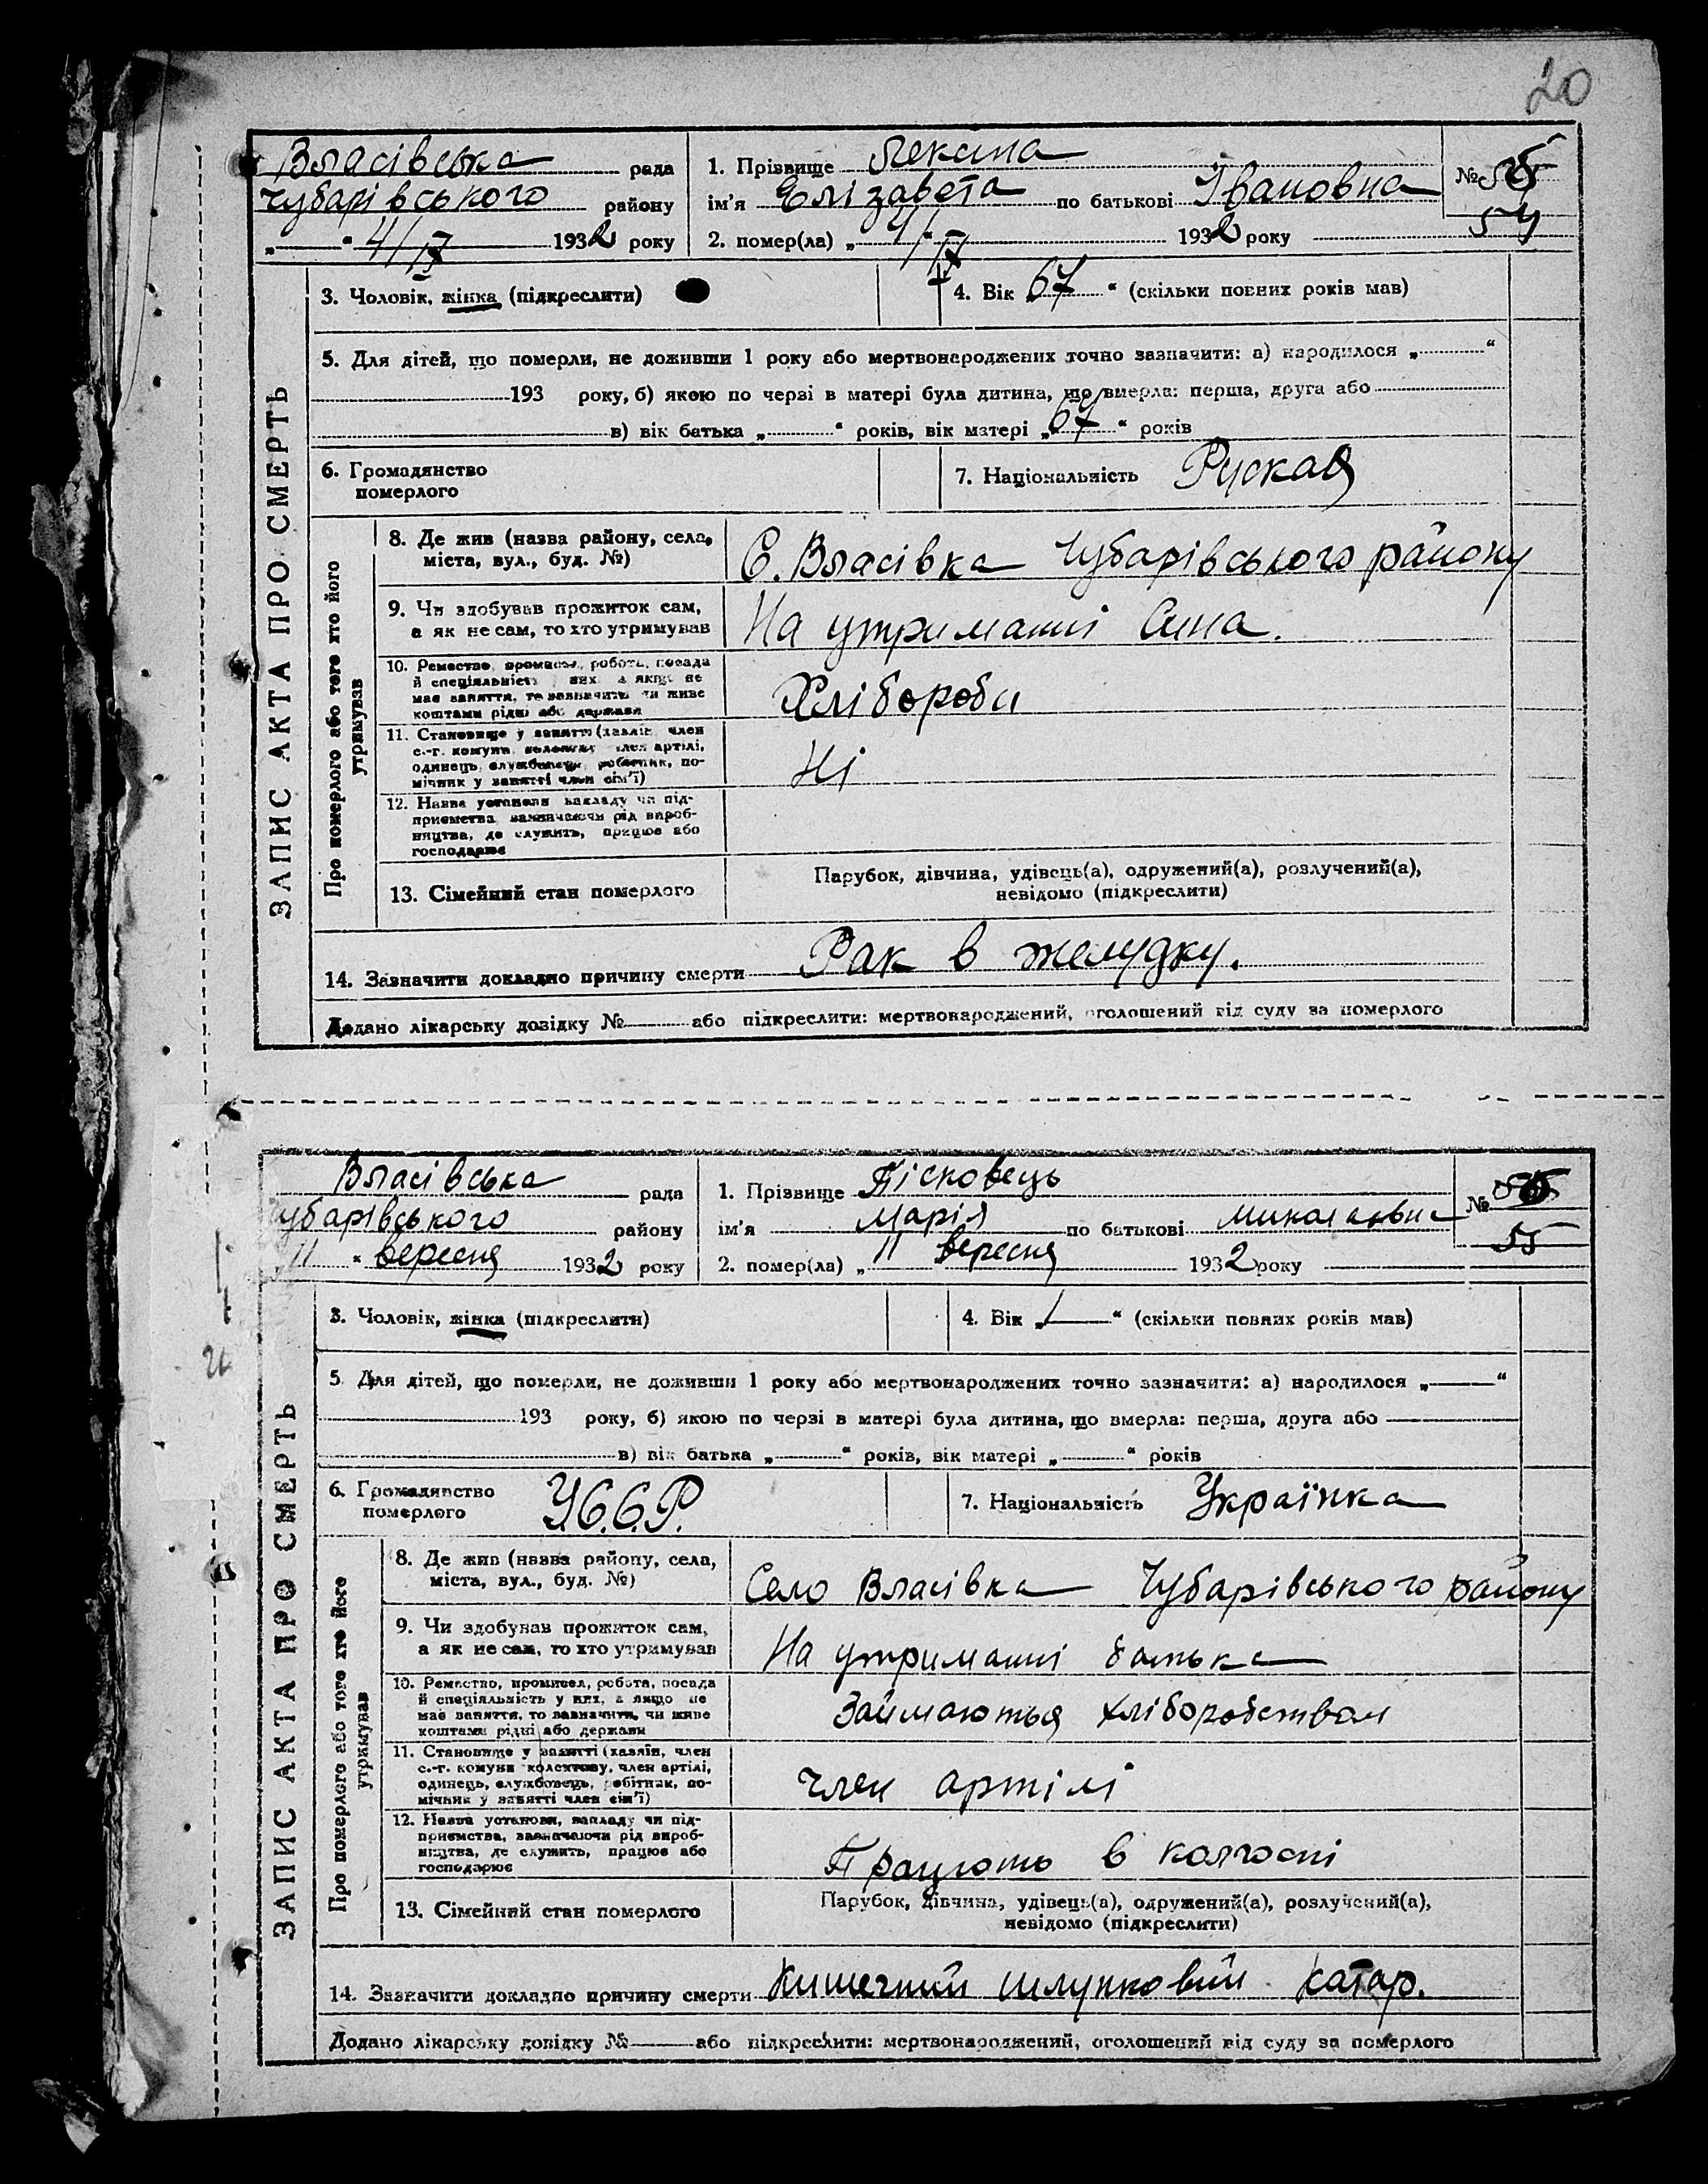 20
Власівська рада
Чубарівського району
„ “ 4/IX 1932 року
1. Прізвище Лекана
ім'я Елізавета по батькові Івановна
2. помер(ла) „ 4/IX 1932 року
№
54
3. Чоловік, жінка (підкреслити)
4. Вік „67“ (скільки повних років мав)
5. Для дітей, що померли, не доживши 1 року або мертвонароджених точно зазначити: а) народилося „ “
193 року, б) якою по черзі в матері була дитина, що вмерла: перша, друга або
в) вік батька „ “ років, вік матері „67“ років
6. Громадянство
померлого
7. Національність Руская
ЗАПИС АКТА ПРО СМЕРТЬ
Про померлого або того хто його
утримував
8. Де жив (назва району, села,
міста, вул., буд. №)
С. Власівка Чубарівського району
9. Чи здобував прожиток сам,
а як не сам, то хто утримував
На утриманні Сина.
10. Ремество, промисел, робота, посада
й спеціальність у них, а якщо не
має заняття, то зазначити чи живе
коштами рідні або держави
Хлібороби
11. Становище у занятті (хазяїн, член
с.-г. комуни, колективу, член артілі,
одинець, службовець, робітник, по-
мічник у занятті член сім'ї)
Ні
12. Назва установи, закладу чи під-
приємства, зазначаючи рід вироб-
ництва, де служить, працює або
господарює
13. Сімейний стан померлого
Парубок, дівчина, удівець(а), одружений(а), розлучений(а),
невідомо (підкреслити)
14. Зазначити докладно причину смерти Рак в желудку.
Додано лікарську довідку № або підкреслити: мертвонароджений, оголошений від суду за померлого
Власівська рада
Чубарівського району
„11“ вересня 1932 року
1. Прізвище Пісковець
ім'я Марія по батькові Миколаівна
2. помер(ла) „11 вересня 1932 року
№
55
3. Чоловік, жінка (підкреслити)
4. Вік „1“ (скільки повних років мав)
5. Для дітей, що померли, не доживши 1 року або мертвонароджених точно зазначити: а) народилося „ “
193 року, б) якою по черзі в матері була дитина, що вмерла: перша, друга або
в) вік батька „ “ років, вік матері „ “ років
6. Громадянство
померлого
У.С.С.Р.
7. Національність Українка
ЗАПИС АКТА ПРО СМЕРТЬ
Про померлого або того хто його
утримував
8. Де жив (назва району, села,
міста, вул., буд. №)
Село Власівка Чубарівського району
9. Чи здобував прожиток сам,
а як не сам, то хто утримував
На утриманні батька
10. Ремество, промисел, робота, посада
й спеціальність у них, а якщо не
має заняття, то зазначити, чи живе
коштами рідні або держави
Займаються хліборобством
11. Становище у занятті (хазяїн, член
с.-г. комуни колективу, член артілі,
одинець, службовець, робітник, по-
мічник у занятті член сім'ї)
член артілі
12. Назва установи, закладу чи під-
приємства, зазначаючи рід вироб-
ництва, де служить, працює або
господарює
Працюють в колгоспі
13. Сімейний стан померлого
Парубок, дівчина, удівець(а), одружений(а), розлучений(а),
невідомо (підкреслити)
14. Зазначити докладно причину смерти Кишечний шлунковий катар.
Додано лікарську довідку № або підкреслити: мертвонароджений, оголошений від суду за померлого